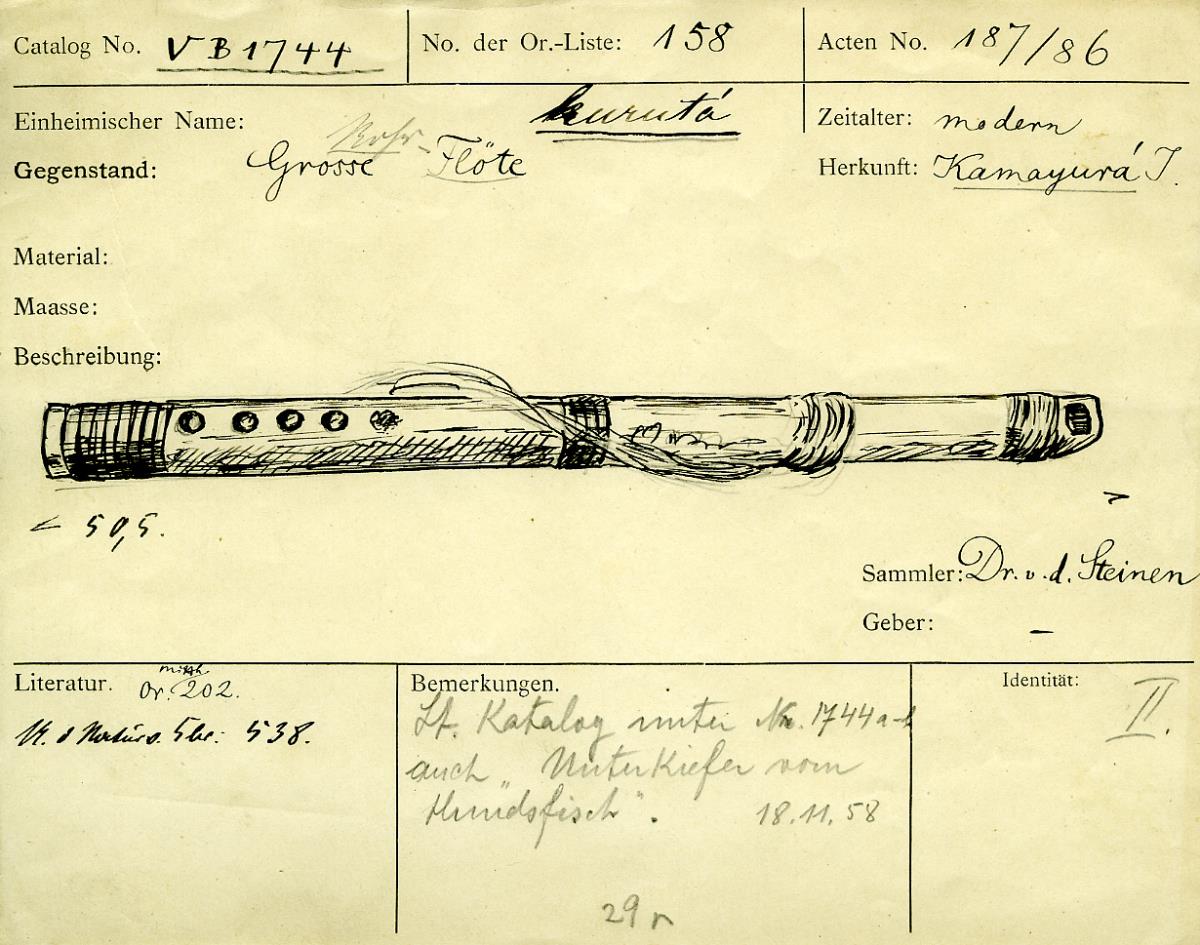 Catalog No. VB1744
No. der Or.-Liste: 158
Acten No. 187/86
Einheimischer Name: kurutá
Zeitalter: modern
Rohr-
Gegenstand: Grosse Flöte
Herkunft: Kamayurá I.
Material:
Maasse:
Beschreibung:
< 50,5. >
Sammler: Dr. v. d. Steinen
Geber: –
Literatur. Or. 202.
538.
Bemerkungen.
Lt. Katalog unter Nr. 1744a-b
auch „Unterkiefer vom
Hundsfisch".
18.11.58
29
Identität: II.